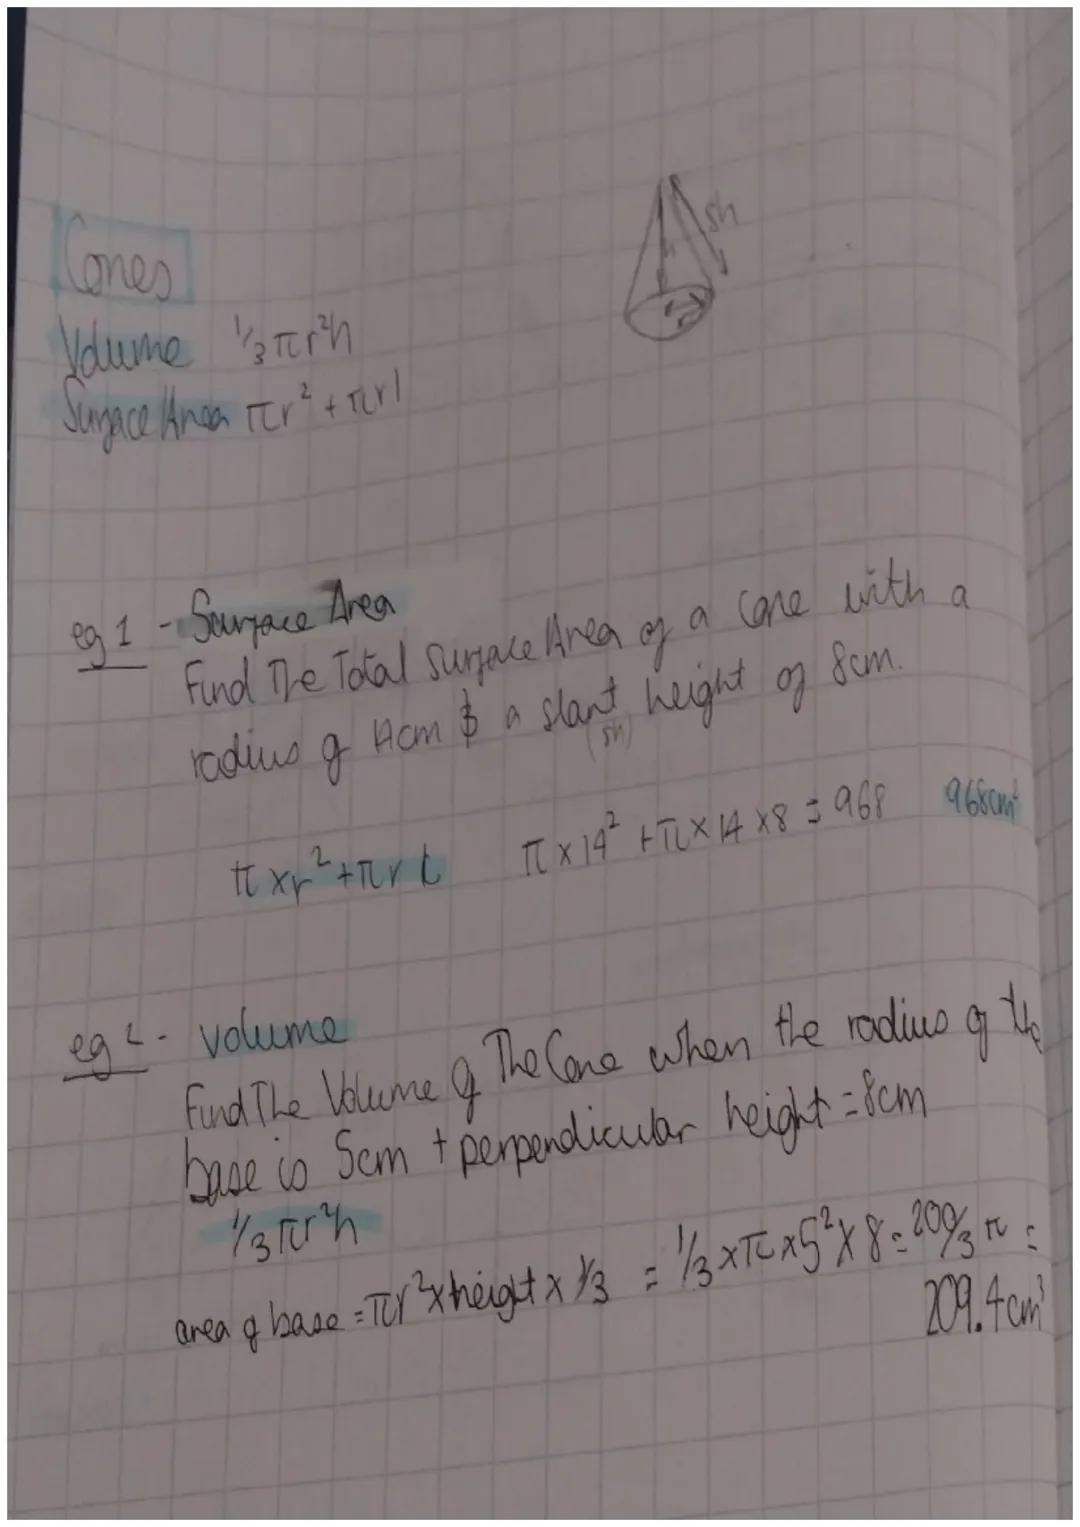 sh
Cones
Volume 1/3 πr²h
Surface Area πr² + πrl
eg 1 - Surface Area
Find The Total Surface Area of a cone with a
radius of 14cm & a slant height of 8cm.
(sh)
π x r² + πrl π x 14² + π x 14 x 8 = 968 968cm²
eg 2 - volume
Find The Volume of The Cone when the radius of the
base is 5cm + perpendicular height = 8cm
1/3 πr²h
area of base = πr² x height x 1/3 = 1/3 x π x 5² x 8 = 200/3 π =
209.4cm³